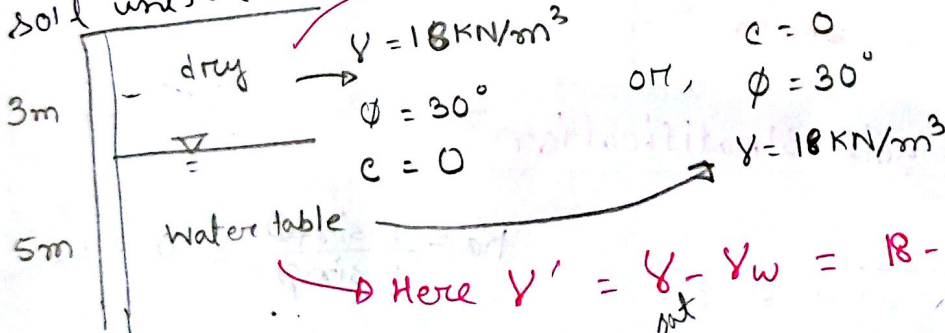 soil
dry → γ = 18 KN/m³ c = 0
3m φ = 30° or, φ = 30°
c = 0 γ = 18 KN/m³
5m water table
→ Here γ' = γsat - γw = 18 -